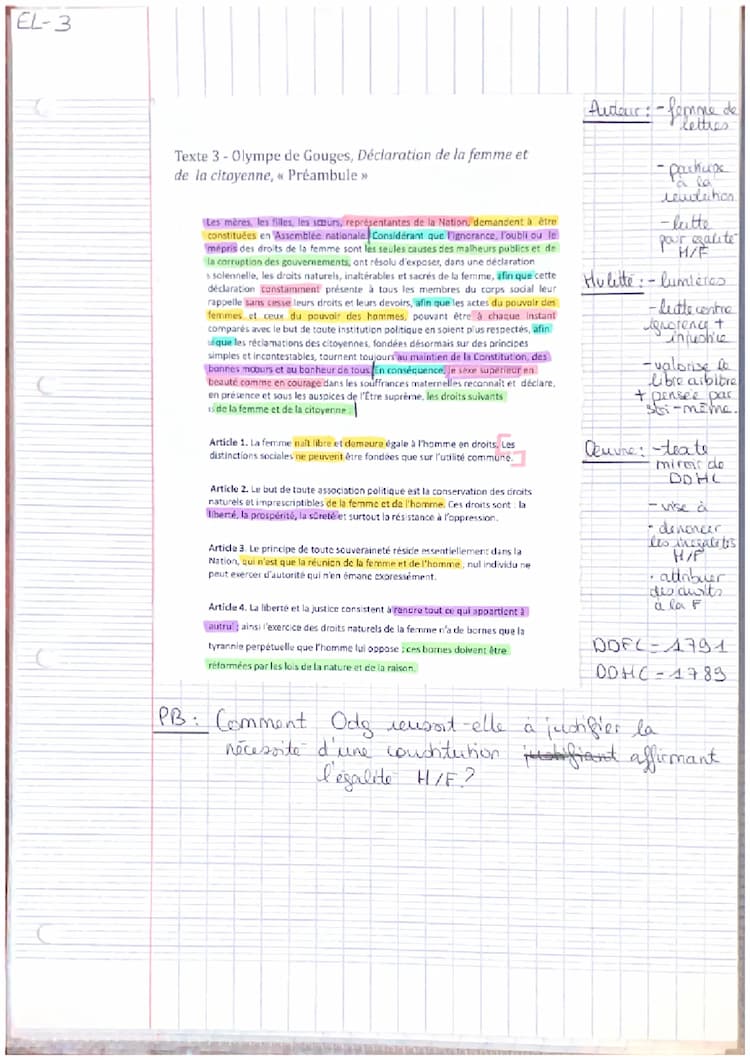 EL-3
Texte 3 - Olympe de Gouges, Déclaration de la femme et
de la citoyenne, « Préambule »
Les mères, les filles, les sœurs, représentantes de la Nation, demandent à être
constituées en Assemblée nationale. Considérant que l'ignorance, l'oubli ou le
mépris des droits de la femme sont les seules causes des malheurs publics et de
la corruption des gouvernements, ont résolu d'exposer, dans une déclaration
solennelle, les droits naturels, inaltérables et sacrés de la femme, afin que cette
déclaration constamment présente à tous les membres du corps social leur
rappelle sans cesse leurs droits et leurs devoirs, afin que les actes du pouvoir des
femmes, et ceux du pouvoir des hommes, pouvant être à chaque instant
comparés avec le but de toute institution politique en soient plus respectés, afin
que les réclamations des citoyennes, fondées désormais sur des principes
simples et incontestables, tournent toujours au maintien de la Constitution, des
bonnes mœurs et au bonheur de tous. En conséquence, le sexe supérieur en
beauté comme en courage dans les souffrances maternelles reconnaît et déclare,
en présence et sous les auspices de l'Être suprême, les droits suivants
de la femme et de la citoyenne :
Article 1. La femme naît libre et demeure égale à l'homme en droits. Les
distinctions sociales ne peuvent être fondées que sur l'utilité commune.
Article 2. Le but de toute association politique est la conservation des droits
naturels et imprescriptibles de la femme et de l'homme. Ces droits sont : la
liberté, la prospérité, la sûreté et surtout la résistance à l'oppression.
Article 3. Le principe de toute souveraineté réside essentiellement dans la
Nation, qui n'est que la réunion de la femme et de l'homme, nul individu ne
peut exercer d'autorité qui n'en émane expressément.
Article 4. La liberté et la justice consistent à rendre tout ce qui appartient à
autrui ; ainsi l'exercice des droits naturels de la femme n'a de bornes que la
tyrannie perpétuelle que l'homme lui oppose ; ces bornes doivent être
réformées par les lois de la nature et de la raison.
Auteur : - femme de
lettres
- participe
à la
revolution
- lutte
pour egalité
H/F
- lumières
- lutte contre
ignorence +
injustice
- valorise le
libre arbitre
+ pensée par
soi-même.
Œuvre : - texte
miroir de
DDHC
- vise à
· denoncer
les inegalités
H/F
· attribuer
des droits
à la F
DDFC = 1791
DDHC = 1789
PB : Comment Odg reussit-elle à justifier la
nécessité d'une constitution justifiant affirmant
l'égalité H/F ?